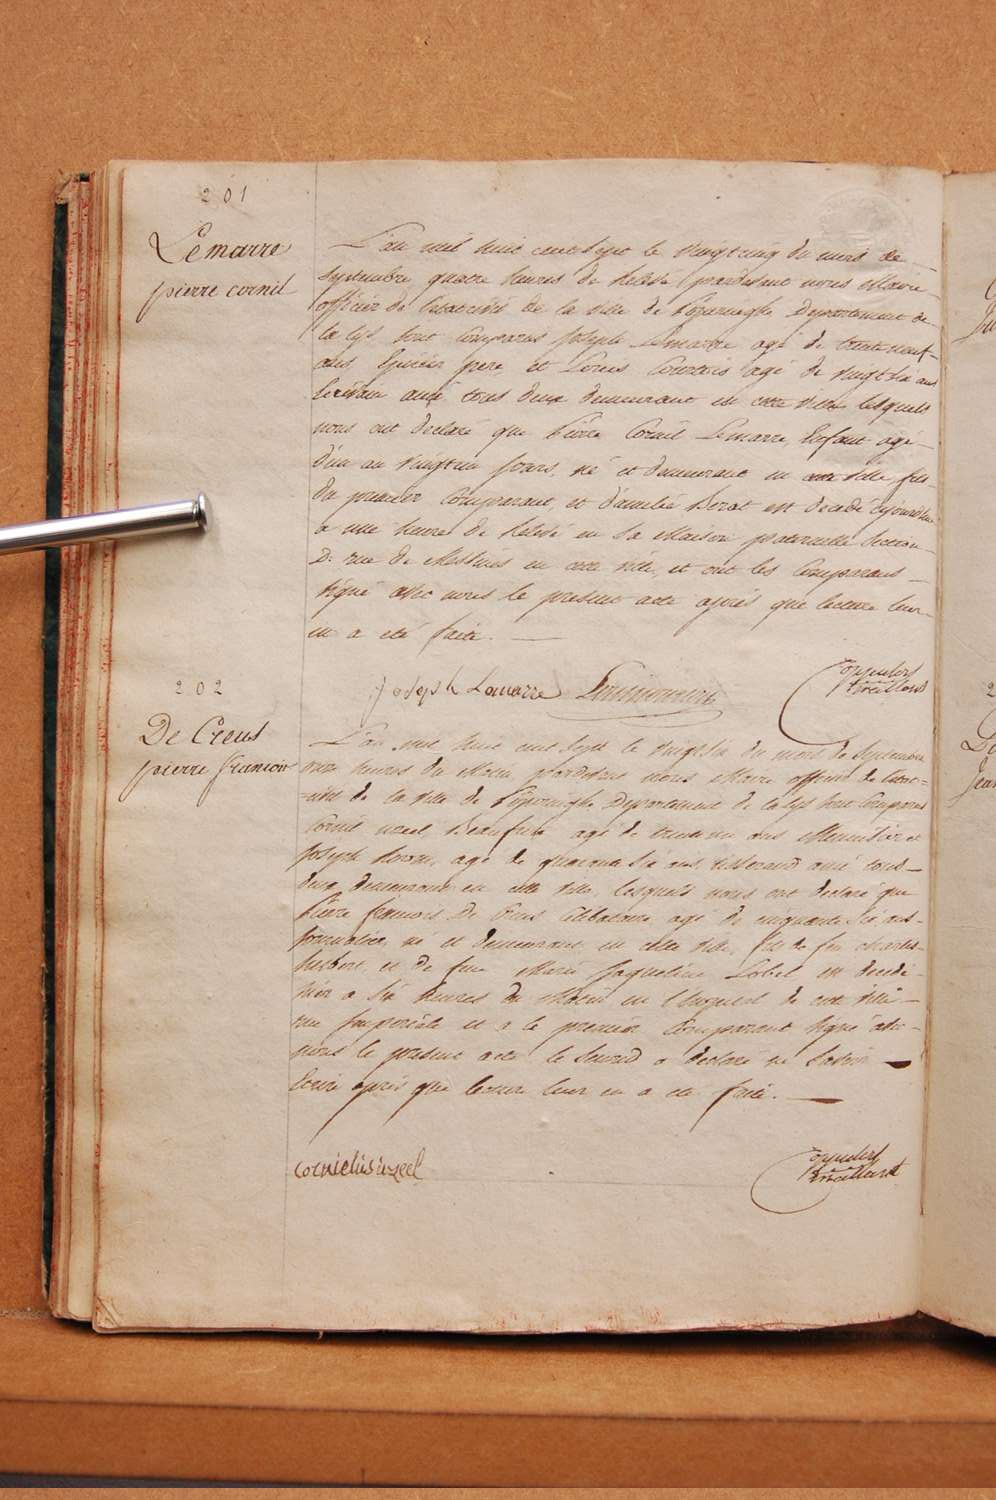 201
Lemarre
pierre cornil
L'an mil huit cent sept le vingt cinq du mois de
Septembre quatre heures de relevé pardevant nous Maire
officier de l'etat civil de la ville de Poperinghe Departement de
la Lys, sont comparus Joseph Lemarre agé de trente neuf
ans, Epicier pere, et Louis Courtois agé de vingt six ans
Ecrivain amé tous deux demeurant en cette ville lesquels
nous ont declaré que Pierre Cornil Lemarre, Enfant agé
d'un an vingt un jours, né et demeurant en cette ville, fils
du premier comparant, et d'amelie Berat est decedé cejourd'hui
a une heure de relevé en sa Maison paternelle Section
D. rue de Messines en cette ville, et ont les comparans
signé avec nous le present acte après que lecture leur
en a eté faite.
Joseph Lemarre
202
De Creus
pierre francois
L'an mil huit cent sept le vingt six du mois de Septembre
onze heures du Matin pardevant nous Maire officier de l'etat
civil de la ville de Poperinghe Departement de la Lys sont comparus
Cornil uzeel agé de ans Menuisier et
Joseph agé de quarante six ans, tisserand amé tous
deux demeurant en cette ville, lesquels nous ont declaré que
Pierre francois De Creus Celibataire agé de cinquante six ans
journalier, né et demeurant en cette ville, fils de feu charles
hubert, et de feue Marie Jaqueline Lobel est decedé
hier a six heures du Matin en l'hopital de cette ville
rue Imperiale et a le premier comparant signé avec
nous le present acte le second a declaré ne savoir
Ecrire après que lecture leur en a eté faite.
cornielis uzeel